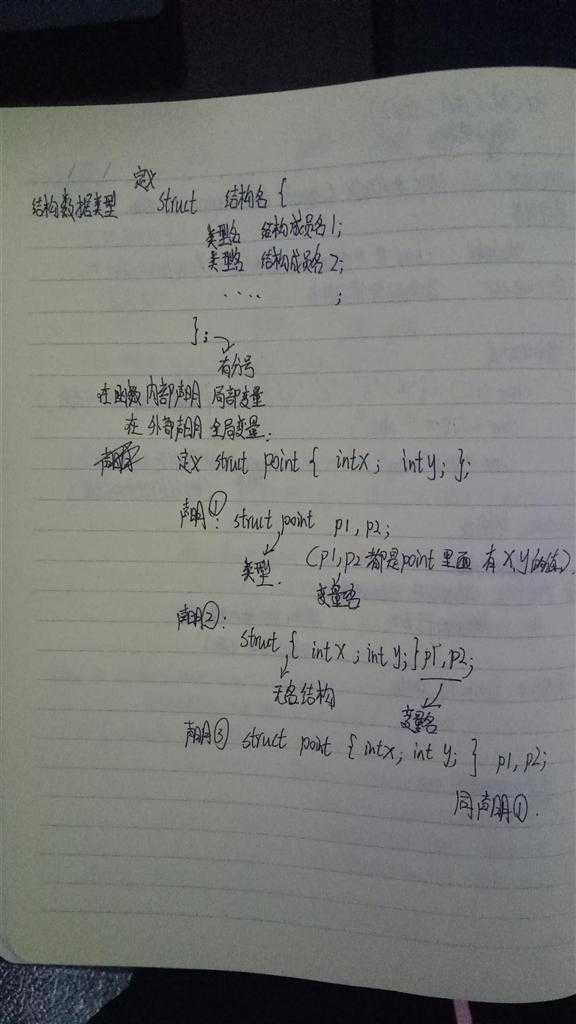 定义
结构数据类型 struct 结构名 {
类型名 结构成员名1;
类型名 结构成员名2;
.... ;
};
有分号
在函数内部声明 局部变量
在外部声明 全局变量;
定义 struct point { int x; int y; };
声明①: struct point p1, p2;
类型. (p1, p2 都是point 里面 有X,Y的值).
变量名
声明②:
struct { int x; int y; } p1, p2;
无名结构
变量名
声明③ struct point { int x; int y; } p1, p2;
同声明①.